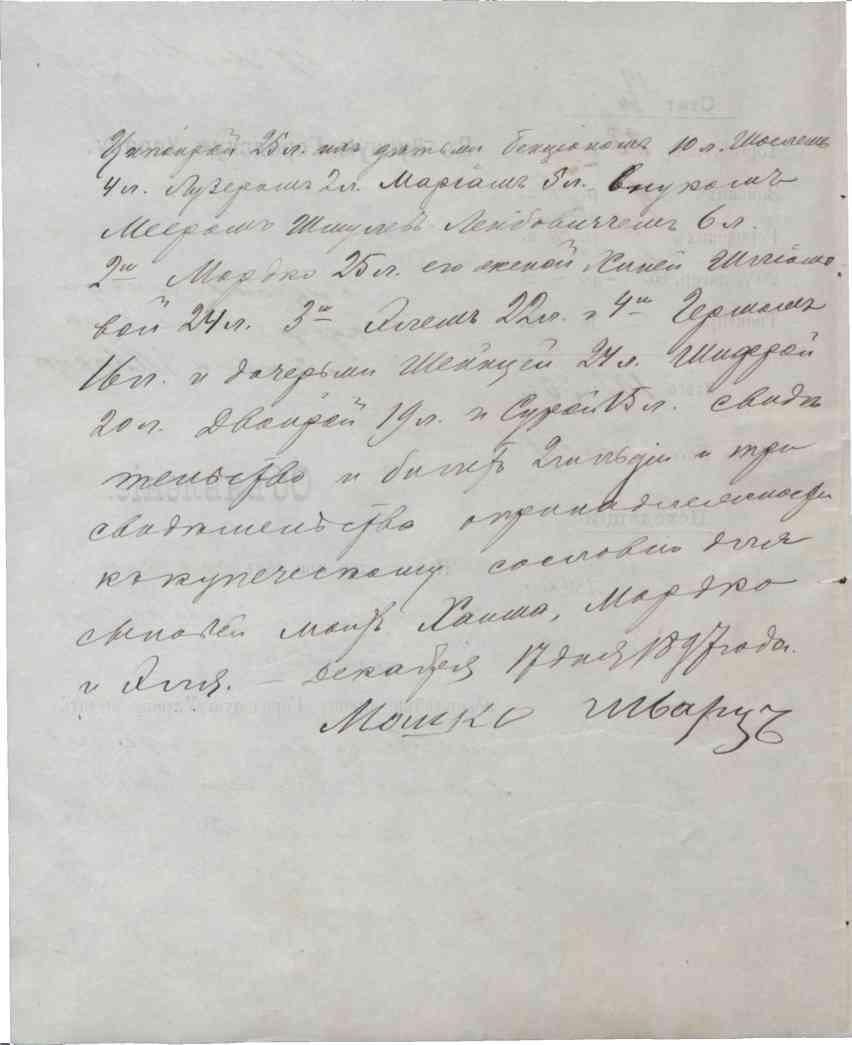 Ципойрой 25 л. ихъ дѣтьми Бенціономъ 10 л. Иослемъ
4 л. Лузеромъ 2 л. Маріамъ 5 л. внукомъ
Мееромъ Шмулевъ Лейбовичемъ 6 л.
2м Мордко 25 л. его женой Ханей
вой 24 л. 3м Элемъ 22 л. и 4м Гершомъ
16 л. и дочерьми Шейнцей 24 л. Шифрой
20 л. Двойрой 19 л. и Сурой 15 л. свидѣ
тельство и билетъ 2 гильдіи и три
свидѣтельства о принадлежности
къ купеческому сословію для
сыновей моихъ Хаима, Мордко
и Эля. — Декабря 17 дня 1897 года.
Мошко Шварцъ